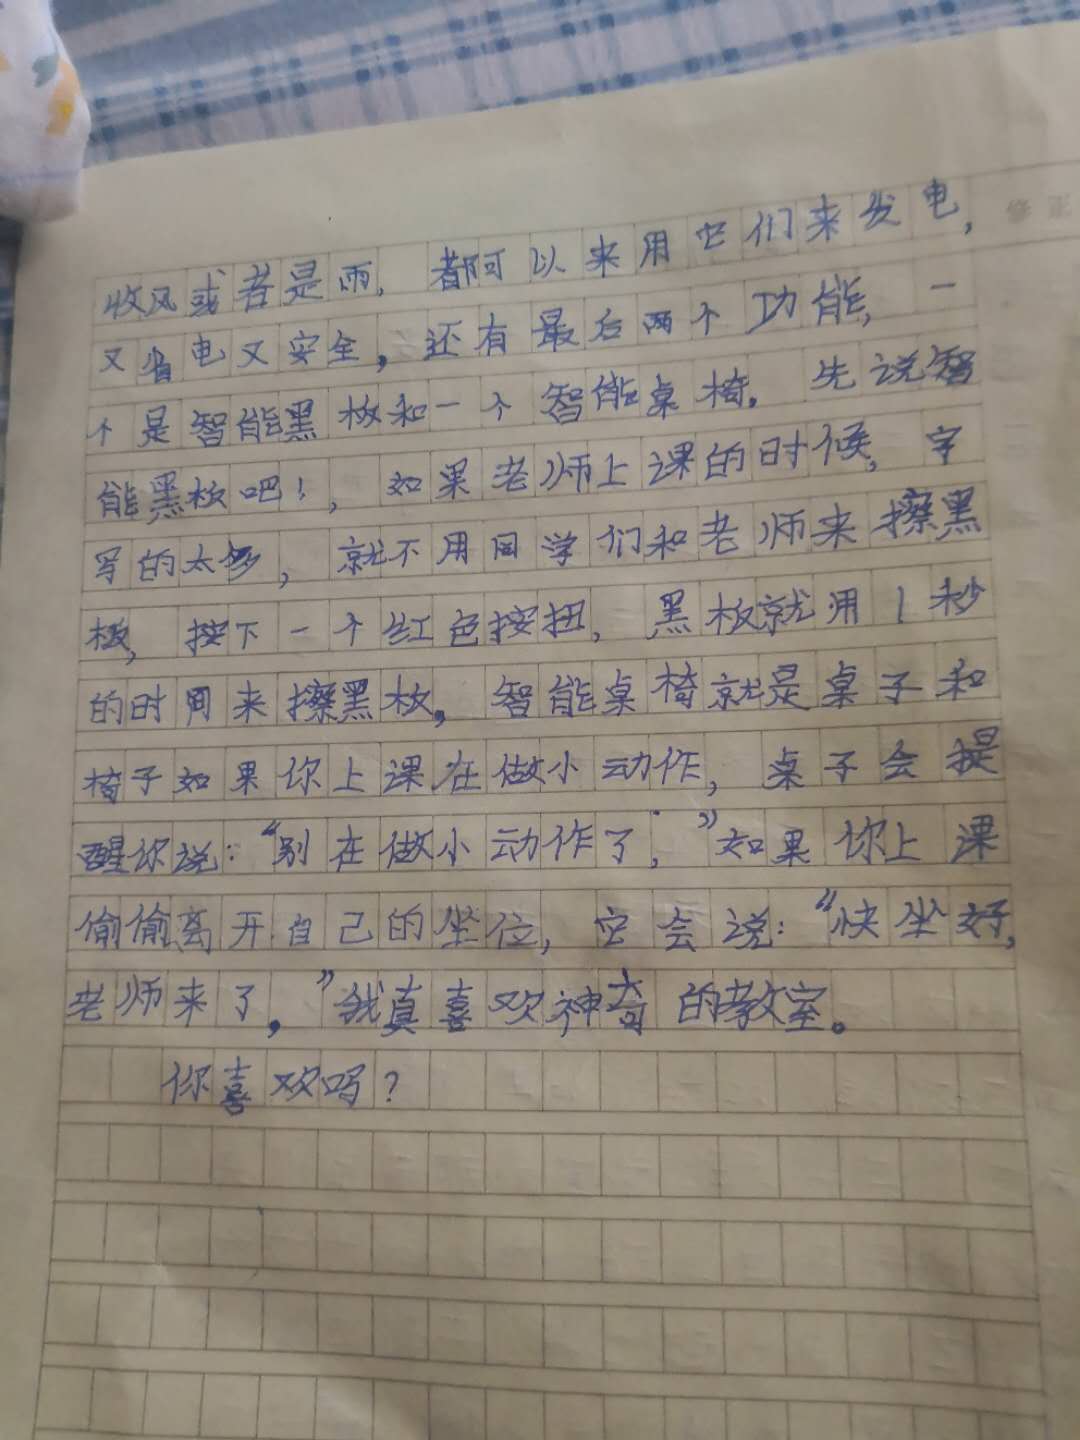 收风或者是雨，都可以来用它们来发电，
又省电又安全，还有最后两个功能，一
个是智能黑板和一个智能桌椅。先说智
能黑板吧！，如果老师上课的时候，字
写的太多，就不用同学们和老师来擦黑
板，按下一个红色按扭，黑板就用1秒
的时间来擦黑板。智能桌椅就是桌子和
椅子如果你上课在做小动作，桌子会提
醒你说：“别在做小动作了；”如果你上课
偷偷离开自己的坐位，它会说：“快坐好，
老师来了。”我真喜欢神奇的教室。
你喜欢吗？
修正